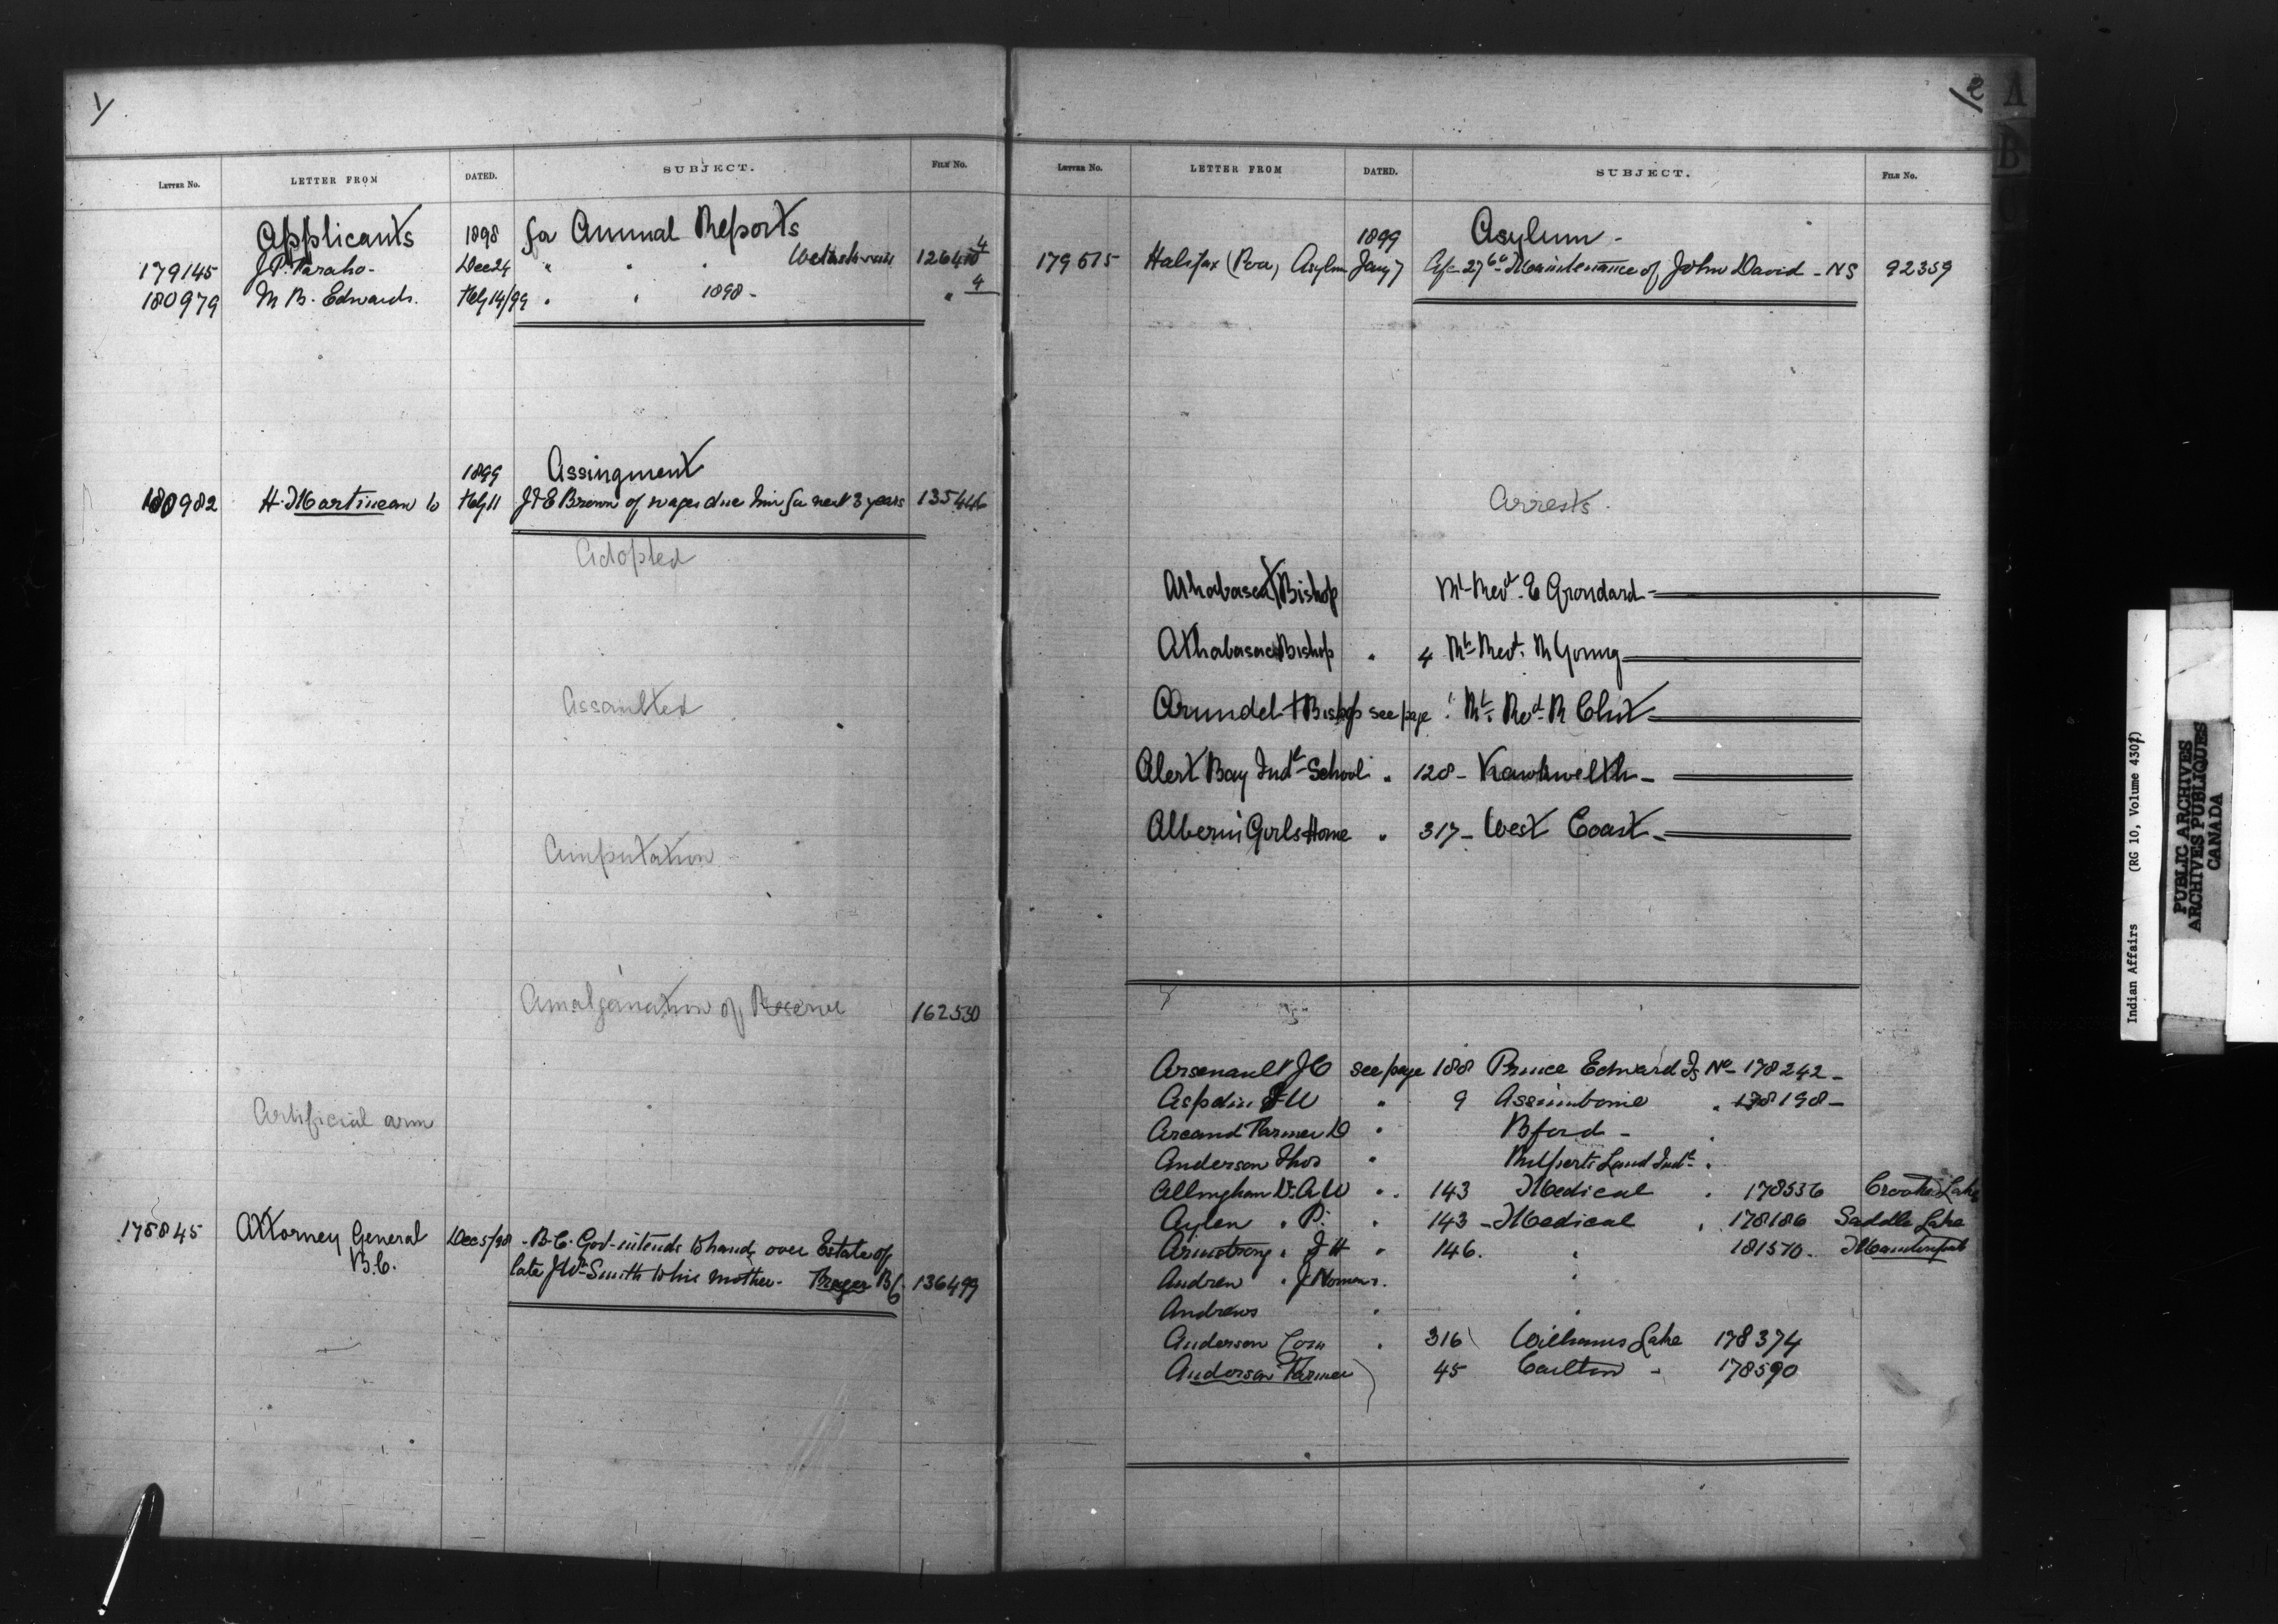 1/
LETTER No. LETTER FROM DATED. SUBJECT. FILE No.
Applicants 1898 for Annual Reports
179145 J.P. Dec 24 " " " 4
180979 M B. Edwards. Feby 14/99 " " 1898 - " 4
1899 Assingment
180982 H. Martineau to Feby 11 J & E Brown of wages due him for next 3 years 135446
Adopted
Assaulted
Amputation
Amalgamation of Reserve 162530
Artificial arm
175845 Attorney General Dec 5/98 - B.C. Govt intends to hand over Estate of
B.C. late J Wm Smith to his mother - B.C. 136499
2
A
B
LETTER No. LETTER FROM DATED. SUBJECT. FILE No.
1899 Asylum -
179615 Halifax (Poor) Asylum Jany 7 Maintenance of John David - NS 92359
Arrests.
Athabasca Bishop Rt Revd. E Grondard -
Athabasca Bishop " 4 Rt Revd. R Young
Arundel + Bishop see page " Rt. Revd. R Clut
Alert Bay Indl School " 128 - Kawkwelth -
Alberni Girls Home " 317 - West Coast -
Arsenault J O see page 188 Prince Edward Is No 178242 -
Aspdin F W " 9 Assiniboine " 178198 -
Arcand Farmer D " Bford -
Anderson Thos " Ruperts Land Indl "
Allingham Dr. A W " " 143 Medical " 178536 Crooked Lake
Aylen " P. " 143 - Medical " 178186 Saddle Lake
Armstrong " J H " 146. " 181570.
Andrew " J "
Andrews " "
Anderson Com " 316 Williams Lake 178374
Anderson Farmer 45 Carlton - 178590
Indian Affairs (RG 10, Volume 4307)
PUBLIC ARCHIVES
ARCHIVES PUBLIQUES
CANADA